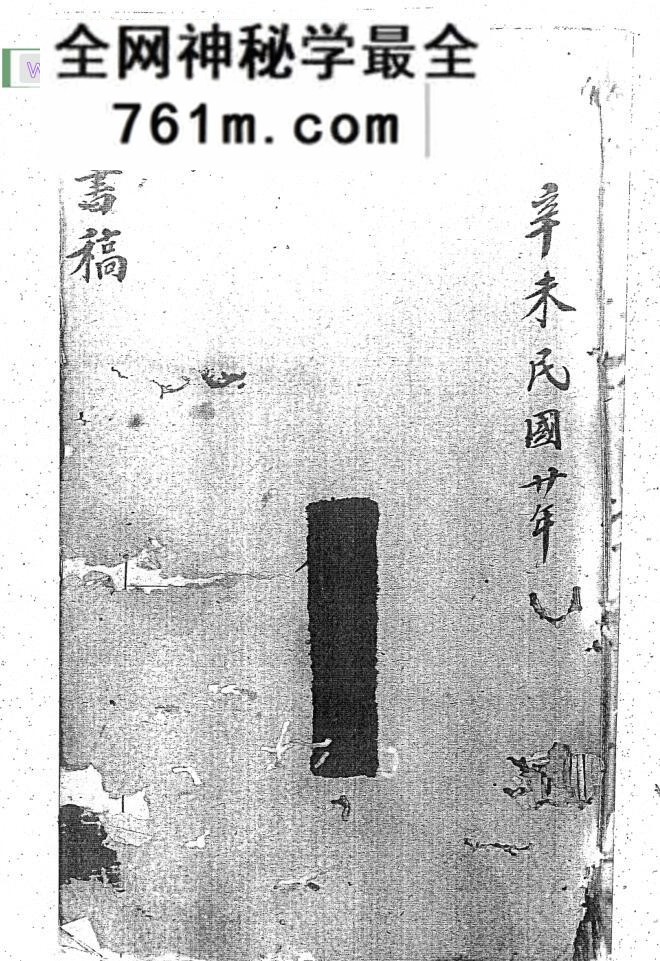 全网神秘学最全
761m.com
辛未民國廿年
書稿